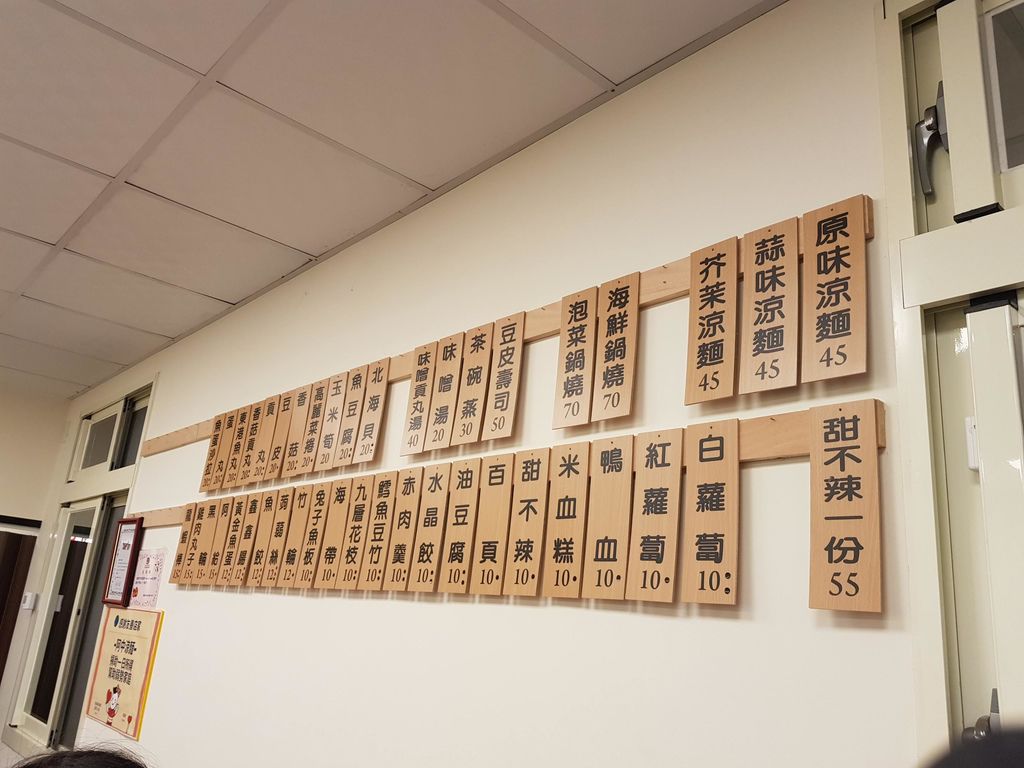 原味涼麵 45
蒜味涼麵 45
芥茉涼麵 45
海鮮鍋燒 70
泡菜鍋燒 70
豆皮壽司 50
茶碗蒸 30
味噌湯 20
味噌貢丸湯 40
北海貝 20
魚豆腐 20
玉米筍 20
高麗菜捲 20
香菇 20
豆皮 20
貢丸 20
香菇貢丸 20
東港魚丸 20
蛋丸 20
甜不辣一份 55
白蘿蔔 10
紅蘿蔔 10
鴨血 10
米血糕 10
甜不辣 10
百頁 10
油豆腐 10
水晶餃 10
赤肉羹 10
鱈魚豆竹 10
九層花枝 10
海帶 10
兔子魚板 10
竹輪 12
蒟蒻絲 12
魚餃 12
鑫鑫腸 12
黃金魚蛋 12
黑輪 15
雞肉丸子 15
龍蝦棒 15
感謝友善店家
阿中涼麵
捐助一日所得
幫助弱勢家庭